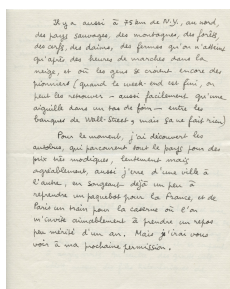 Il y a aussi à 75 km de N.Y., au nord,
des pays sauvages, des montagnes, des forêts,
des cerfs, des daims, des fermes qu'on n'atteint
qu'après des heures de marches dans la
neige, et où les gens se croient encore des
pionniers (quand le week-end est fini, on
peut les retrouver - aussi facilement qu'une
aiguille dans un tas de foin - entre les
banques de Wall-Street, mais ça ne fait rien)
Pour le moment, j'ai découvert les
autobus, qui parcourent tout le pays pour des
prix très modiques, lentement mais
agréablement, aussi j'erre d'une ville à
l'autre, en songeant déjà un peu à
reprendre un paquebot pour la France, et de
Paris un train pour la caserne où l'on
m'invite aimablement à prendre un repos
peu mérité d'un an. Mais j'irai vous
voir à ma prochaine permission.